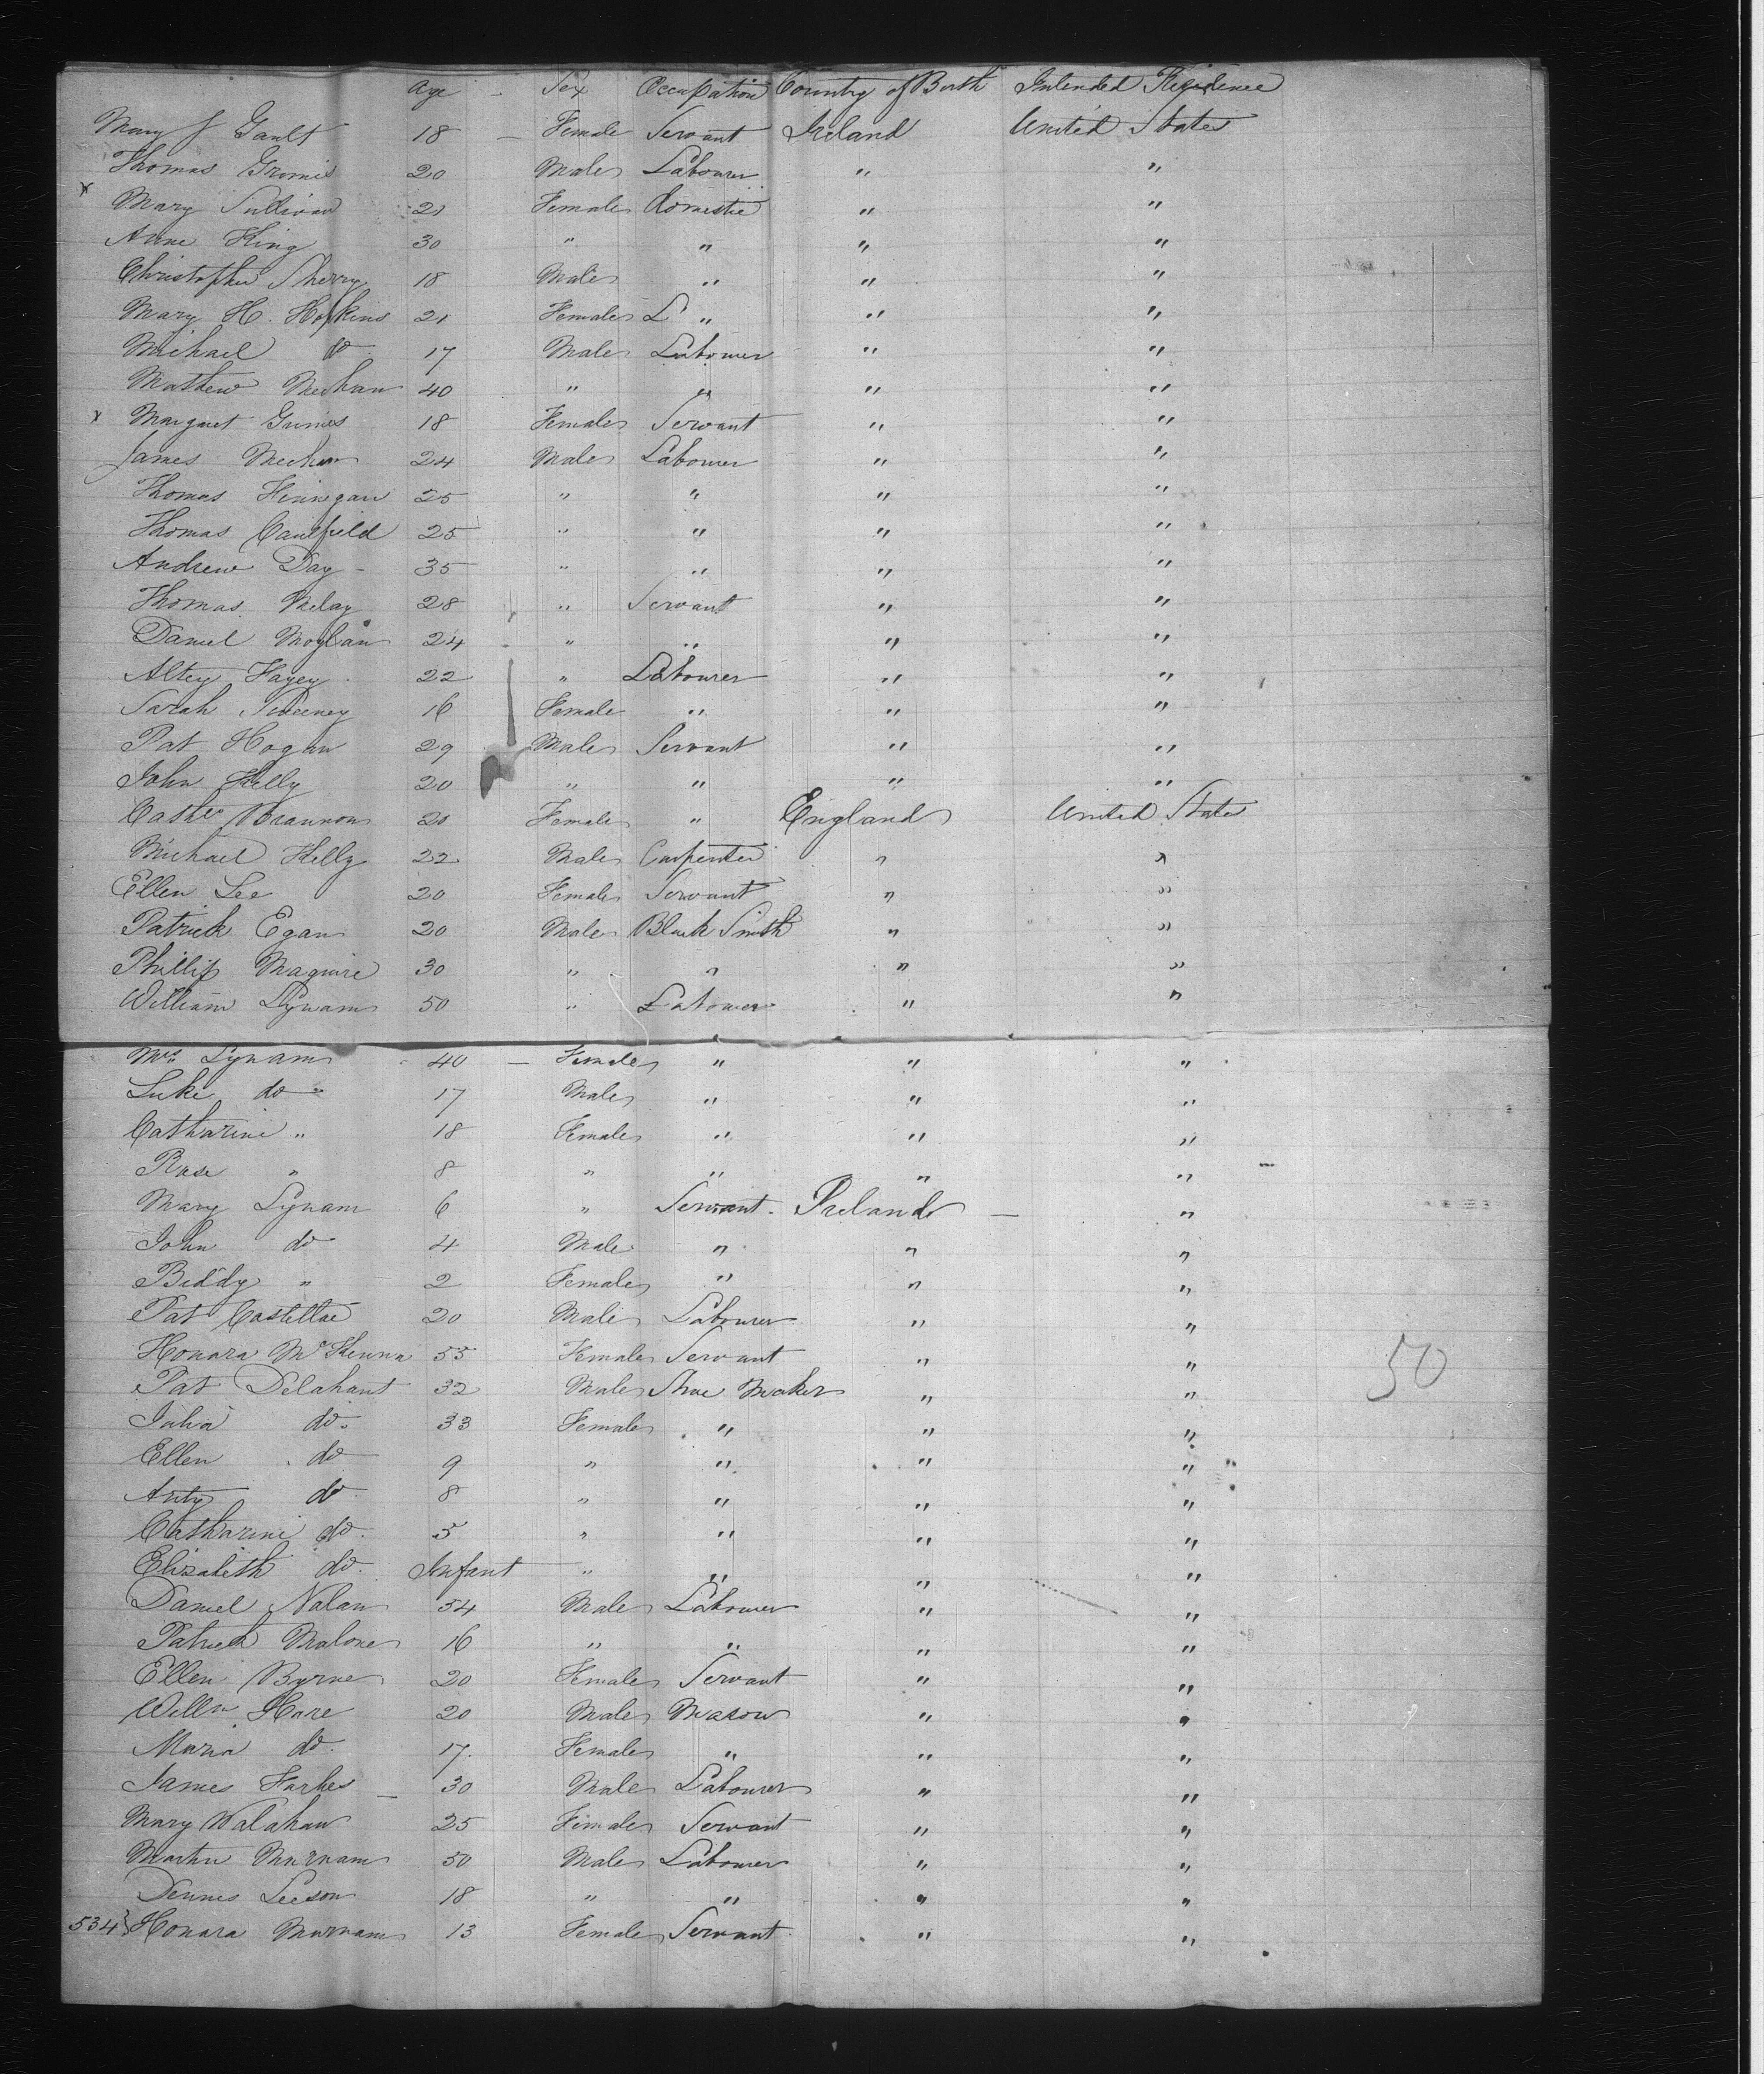 Age Sex Occupation Country of Birth Intended Residence
Mary J Gault 18 — Female Servant Ireland United States
Thomas 20 Male Labourer " "
x Mary Sullivan 21 Female domestic " "
Anne King 30 " " " "
Christopher Sherry 18 Male " " "
Mary H. Hopkins 21 Female L " " "
Michael do 17 Male Labourer " "
Mathew Meehan 40 " " " "
x Margaret Grimes 18 Female Servant " "
James Meehan 24 Male Labourer " "
Thomas Finnegan 25 " " " "
Thomas Caulfield 25 " " " "
Andrew Day - 35 " " " "
Thomas Melay 28 " Servant " "
Daniel Moylan 24 " " " "
Altey Fayey 22 " Labourer " "
Sarah Sweeney 16 Female " " "
Pat Hogan 29 Male Servant " "
John Kelly 20 " " " "
Cathe Brannon 20 Female " England United States
Michael Kelly 22 Male Carpenter " "
Ellen Lee 20 Female Servant " "
Patrick Egan 20 Male Black Smith " "
Phillip Maguire 30 " " " "
William Lynam 50 " Labourer " "
Mrs Lynam 40 — Female " " "
Luke do 17 Male " " "
Catharine " 18 Female " " "
Rose " 8 " " " "
Mary Lynam 6 " Servant Ireland — "
John do 4 Male " " "
Biddy " 2 Female " " "
Pat Costelloe 20 Male Labourer " "
Honara McKenna 55 Female Servant " "
Pat Delahant 32 Male Shoe Maker " " 50
Julia do. 33 Female " " "
Ellen do 9 " " " "
Anty do. 8 " " " "
Catharine do. 5 " " " "
Elizabeth do. Infant " " " "
Daniel Nolan 54 Male Labourer " "
Patrick Malone 16 " " " "
Ellen Byrne 20 Female Servant " "
Willm Hare 20 Male Mason " "
Maria do. 17. Female " " "
James Forbes — 30 Male Labourer " "
Mary Walahan 25 Female Servant " "
Martin Murnam 50 Male Labourer " "
Dennis Leeson 18 " " " "
534} Honara Murnam 13 Female Servant " "